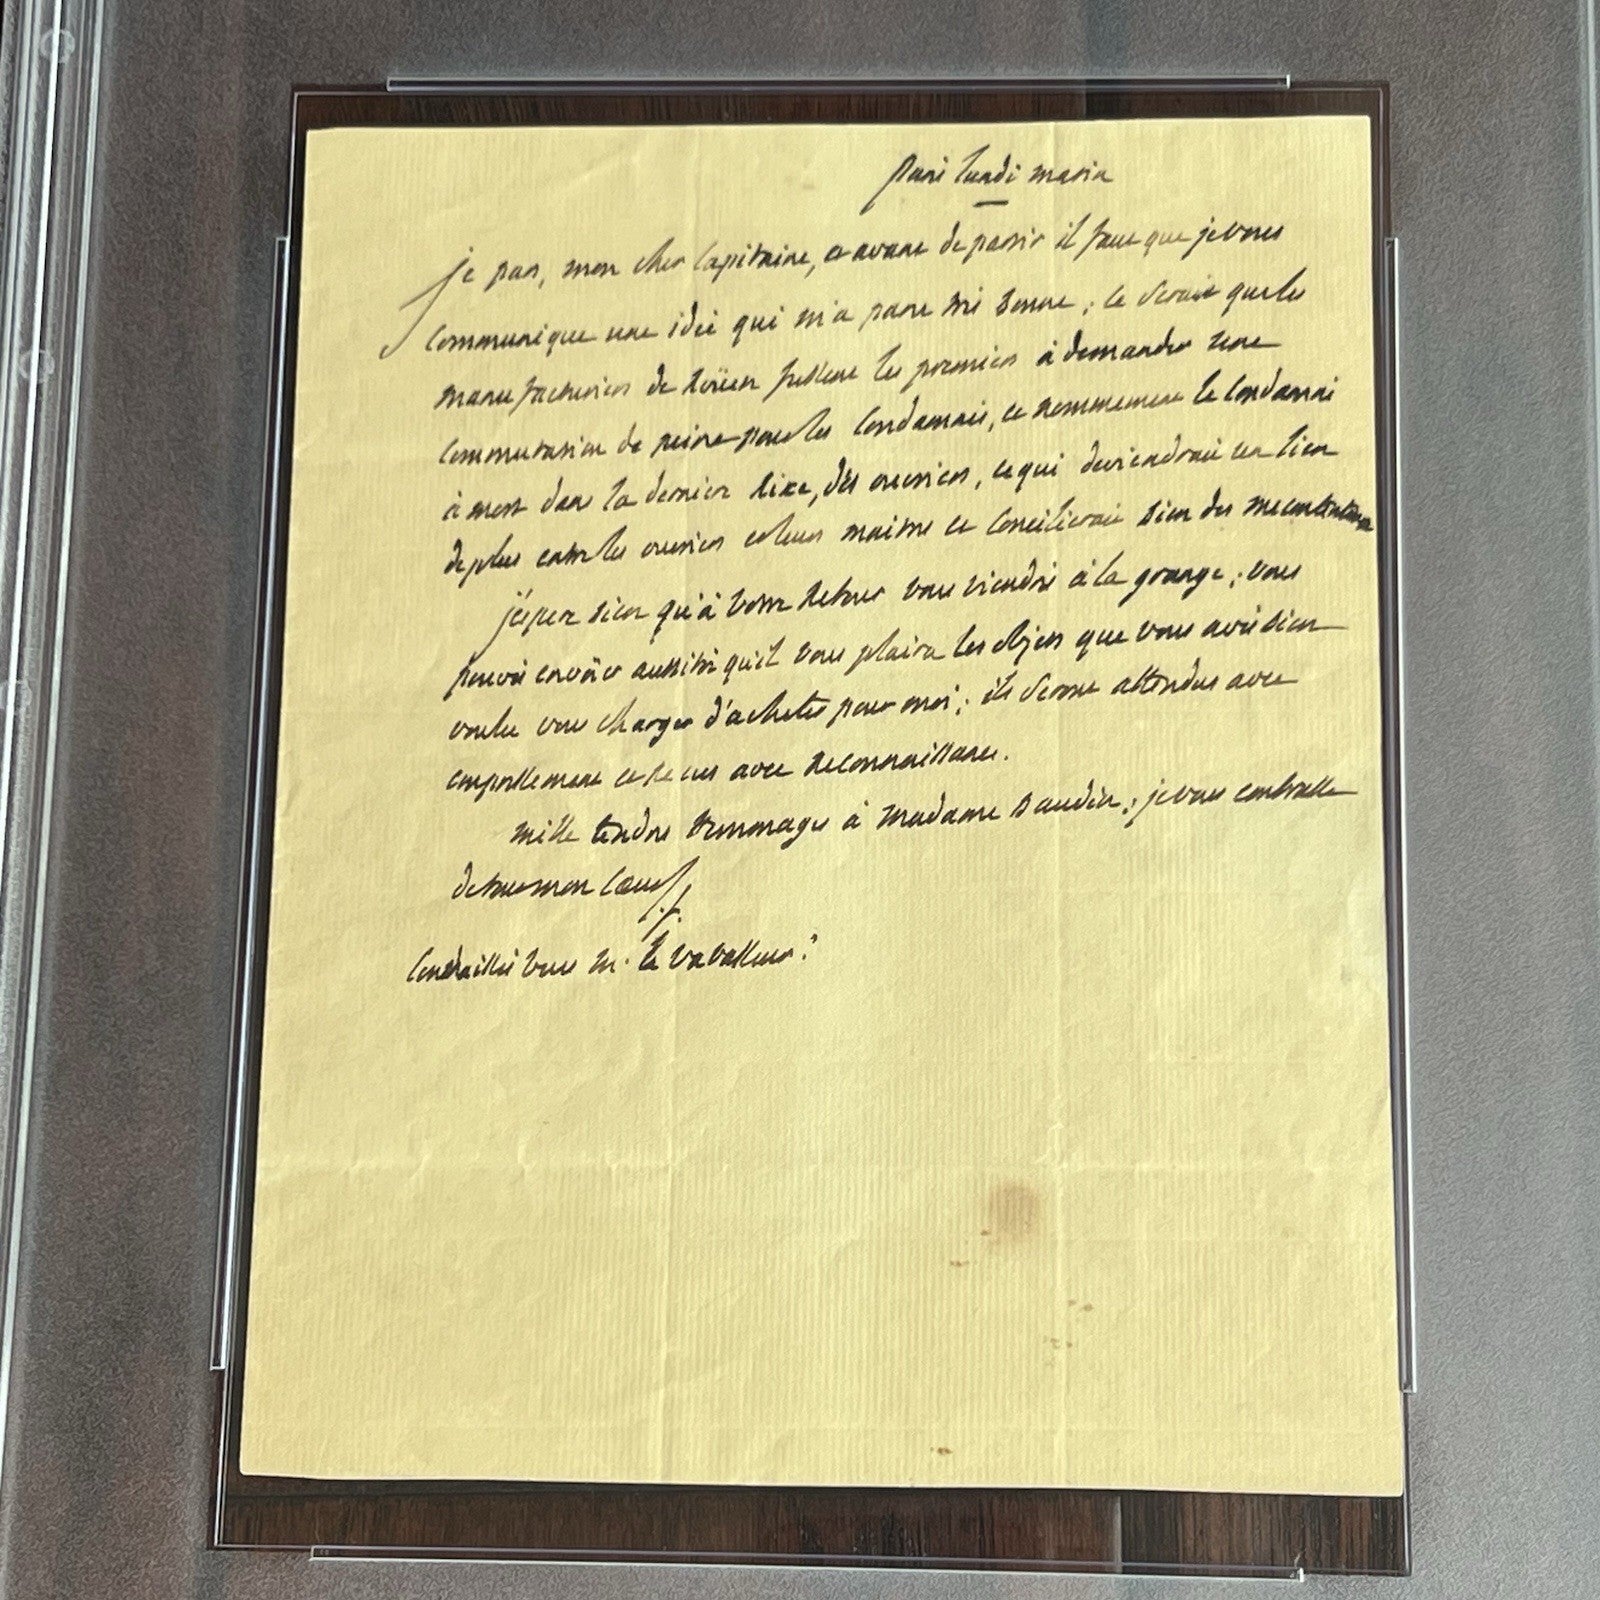 Paris lundi matin
je pars, mon cher Capitaine, et avant de partir il faut que je vous
Communique une idée qui m'a parue très bonne ; ce serait que les
manufacturiers de Roüen fussent les premiers à demander une
Commutation de peine pour les Condamnés, et nommément le Condamné
à mort dans la dernière rixe, des ouvriers, ce qui deviendrait un lien
de plus entre les ouvriers et leurs maitres et Concilierait bien des mecontentemens
j'éspere bien qu'à votre Retour vous viendrés à la grange ; vous
pouvés envoïer aussitôt qu'il vous plaira les objets que vous avés bien
voulu vous charger d'acheter pour moi ; ils seront attendus avec
empressement et recus avec Reconnaissance.
mille tendres hommages à Madame Baudin ; je vous embrasse
de tout mon Coeur
Connaissés vous M. le vavasseur ?